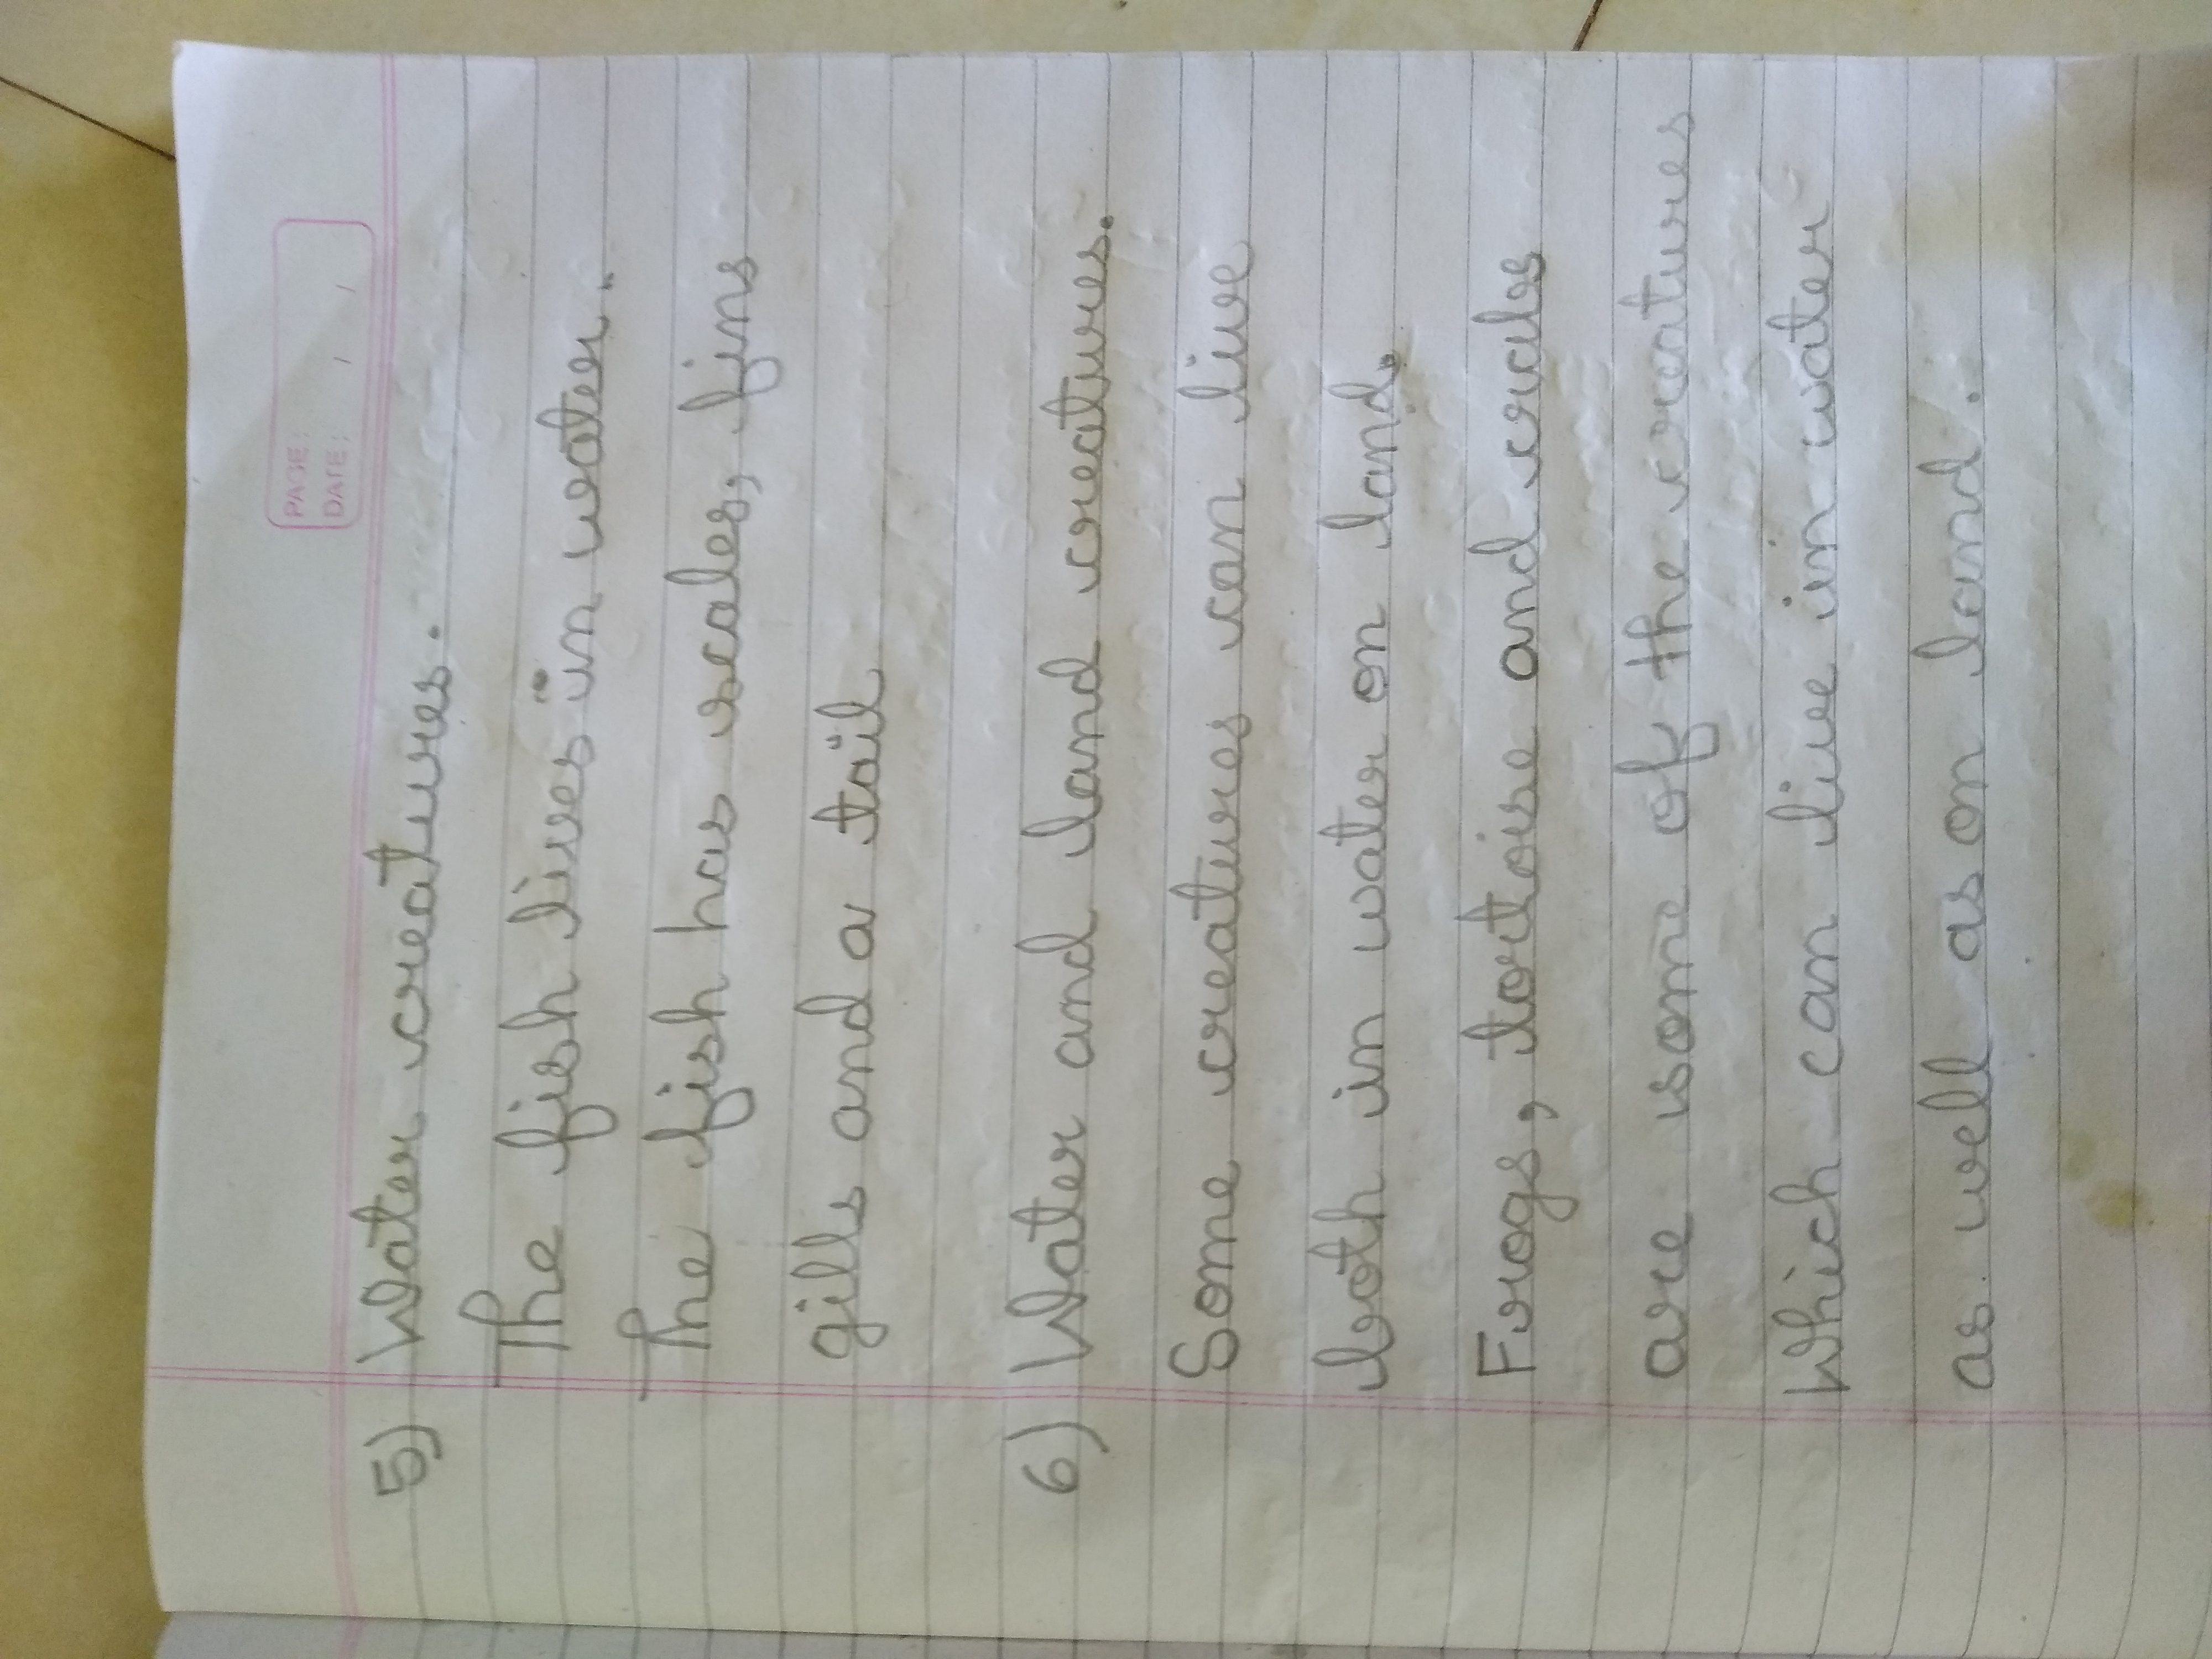 PAGE:
DATE: / /
5) Water creatures.
The fish lives in water.
The fish has scales, fins
gills and a tail
6) Water and land creatures.
Some creatures can live
both in water on land.
Frogs, tortoise and crabs
are some of the creatures
which can live in water
as well as on land.